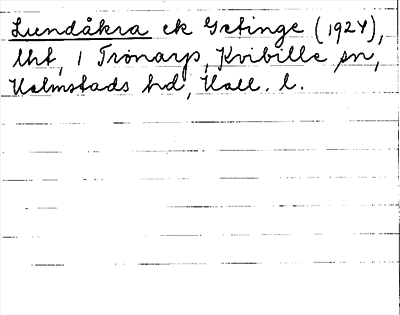 Lundåkra ek Getinge (1924),
lht, 1 Trönarp, Kvibille sn,
Halmstads hd, Hall. l.